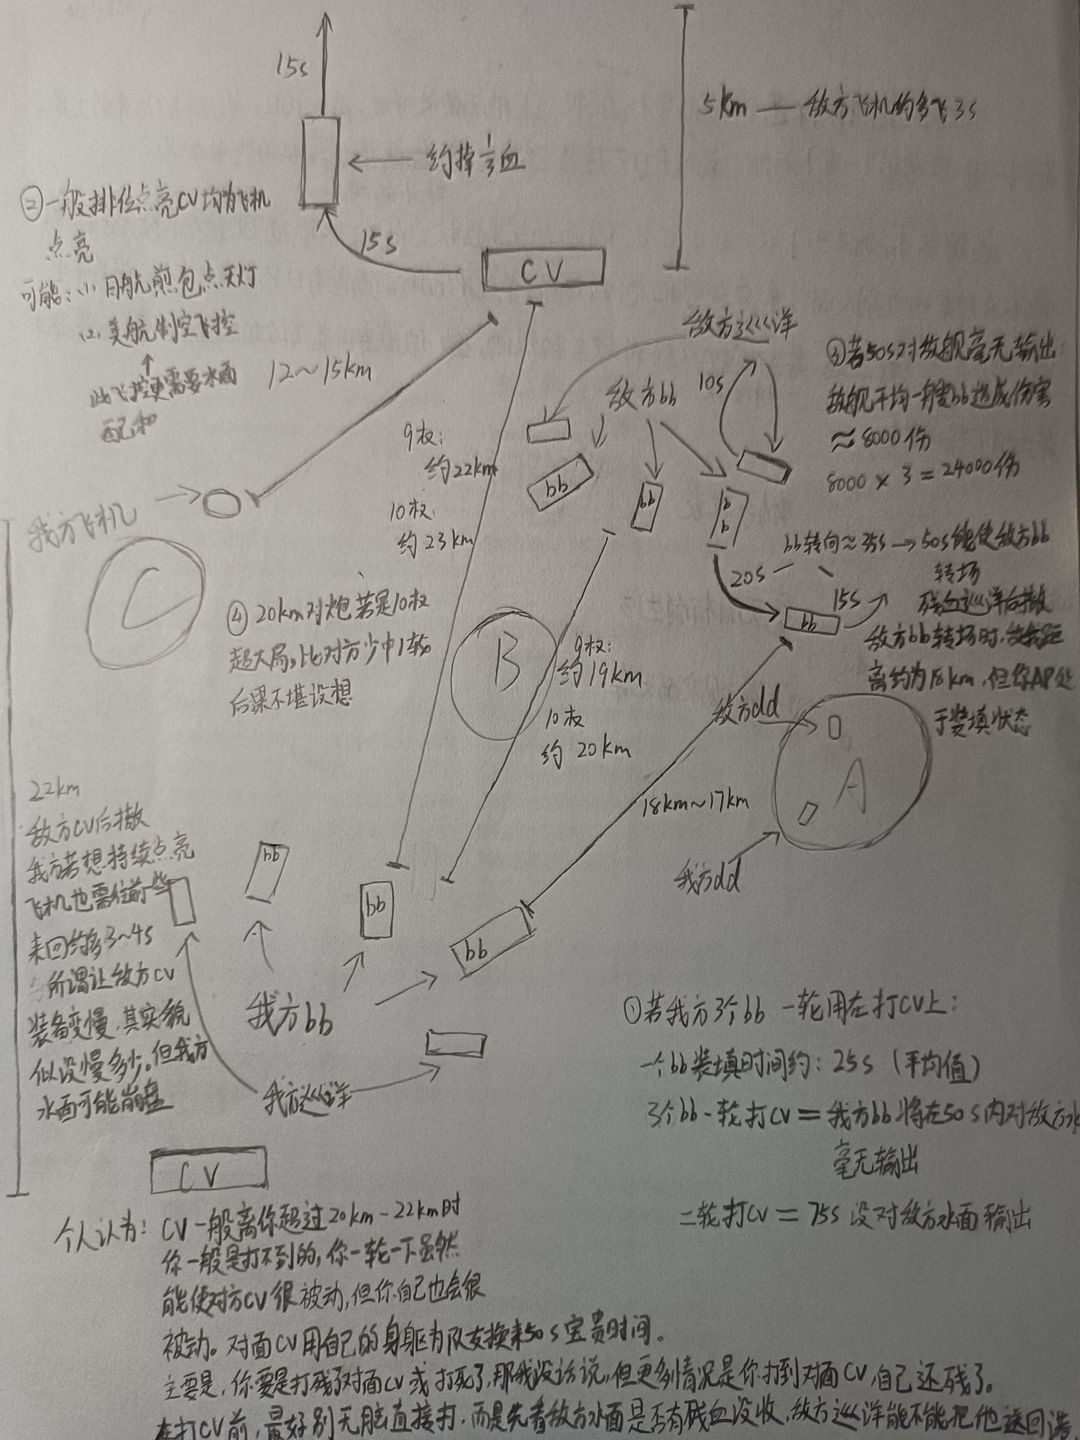 15s
5km — 敌方飞机约多飞3s
约掉⅓血
②一般排位点亮CV均为飞机
点亮
15s
CV
可能：(1) 日航煎包点天灯
(2) 美航制空飞控
此飞控更需要水面
配和
12～15km
敌方巡洋
敌方bb
10s
③若50s对敌舰毫无输出：
敌舰平均一艘bb造成伤害
≈8000伤
8000 × 3 = 24000伤
9杈：
约22km
10杈：
约23km
bb
bb
bb
我方飞机
C
bb转向≈35s → 50s能使敌方bb
转场
残血巡洋后撤
20s
15s
bb
敌方bb转场时，敌我距
离约为18km，但你AP处
于装填状态
④20km对炮若是10杈
超大局，比对方少中1轮
后果不堪设想
B
9杈：
约19km
10杈
约 20km
敌方dd
A
18km～17km
我方dd
22km
敌方CV后撤
我方若想持续点亮
飞机也需往前些
来回约多3～4s
所谓让敌方CV
装备变慢，其实貌
似没慢多少。但我方
水面可能崩盘
bb
bb
bb
我方bb
我方巡洋
CV
①若我方3个bb 一轮用在打CV上：
一个bb装填时间约：25s（平均值）
3个bb一轮打CV = 我方bb将在50s内对敌方水
毫无输出
二轮打CV = 75s 没对敌方水面输出
个人认为：CV一般离你超过20km-22km时
你一般是打不到的，你一轮一下虽然
能使对方CV很被动，但你自己也会很
被动。对面CV用自己的身躯为队友换来50s宝贵时间。
主要是，你要是打残了对面CV或打死了，那我没话说，但更多情况是你打到对面CV，自己还残了。
在打CV前，最好别无脑直接打，而是先看敌方水面是否有残血没收，敌方巡洋能不能把他送回港，